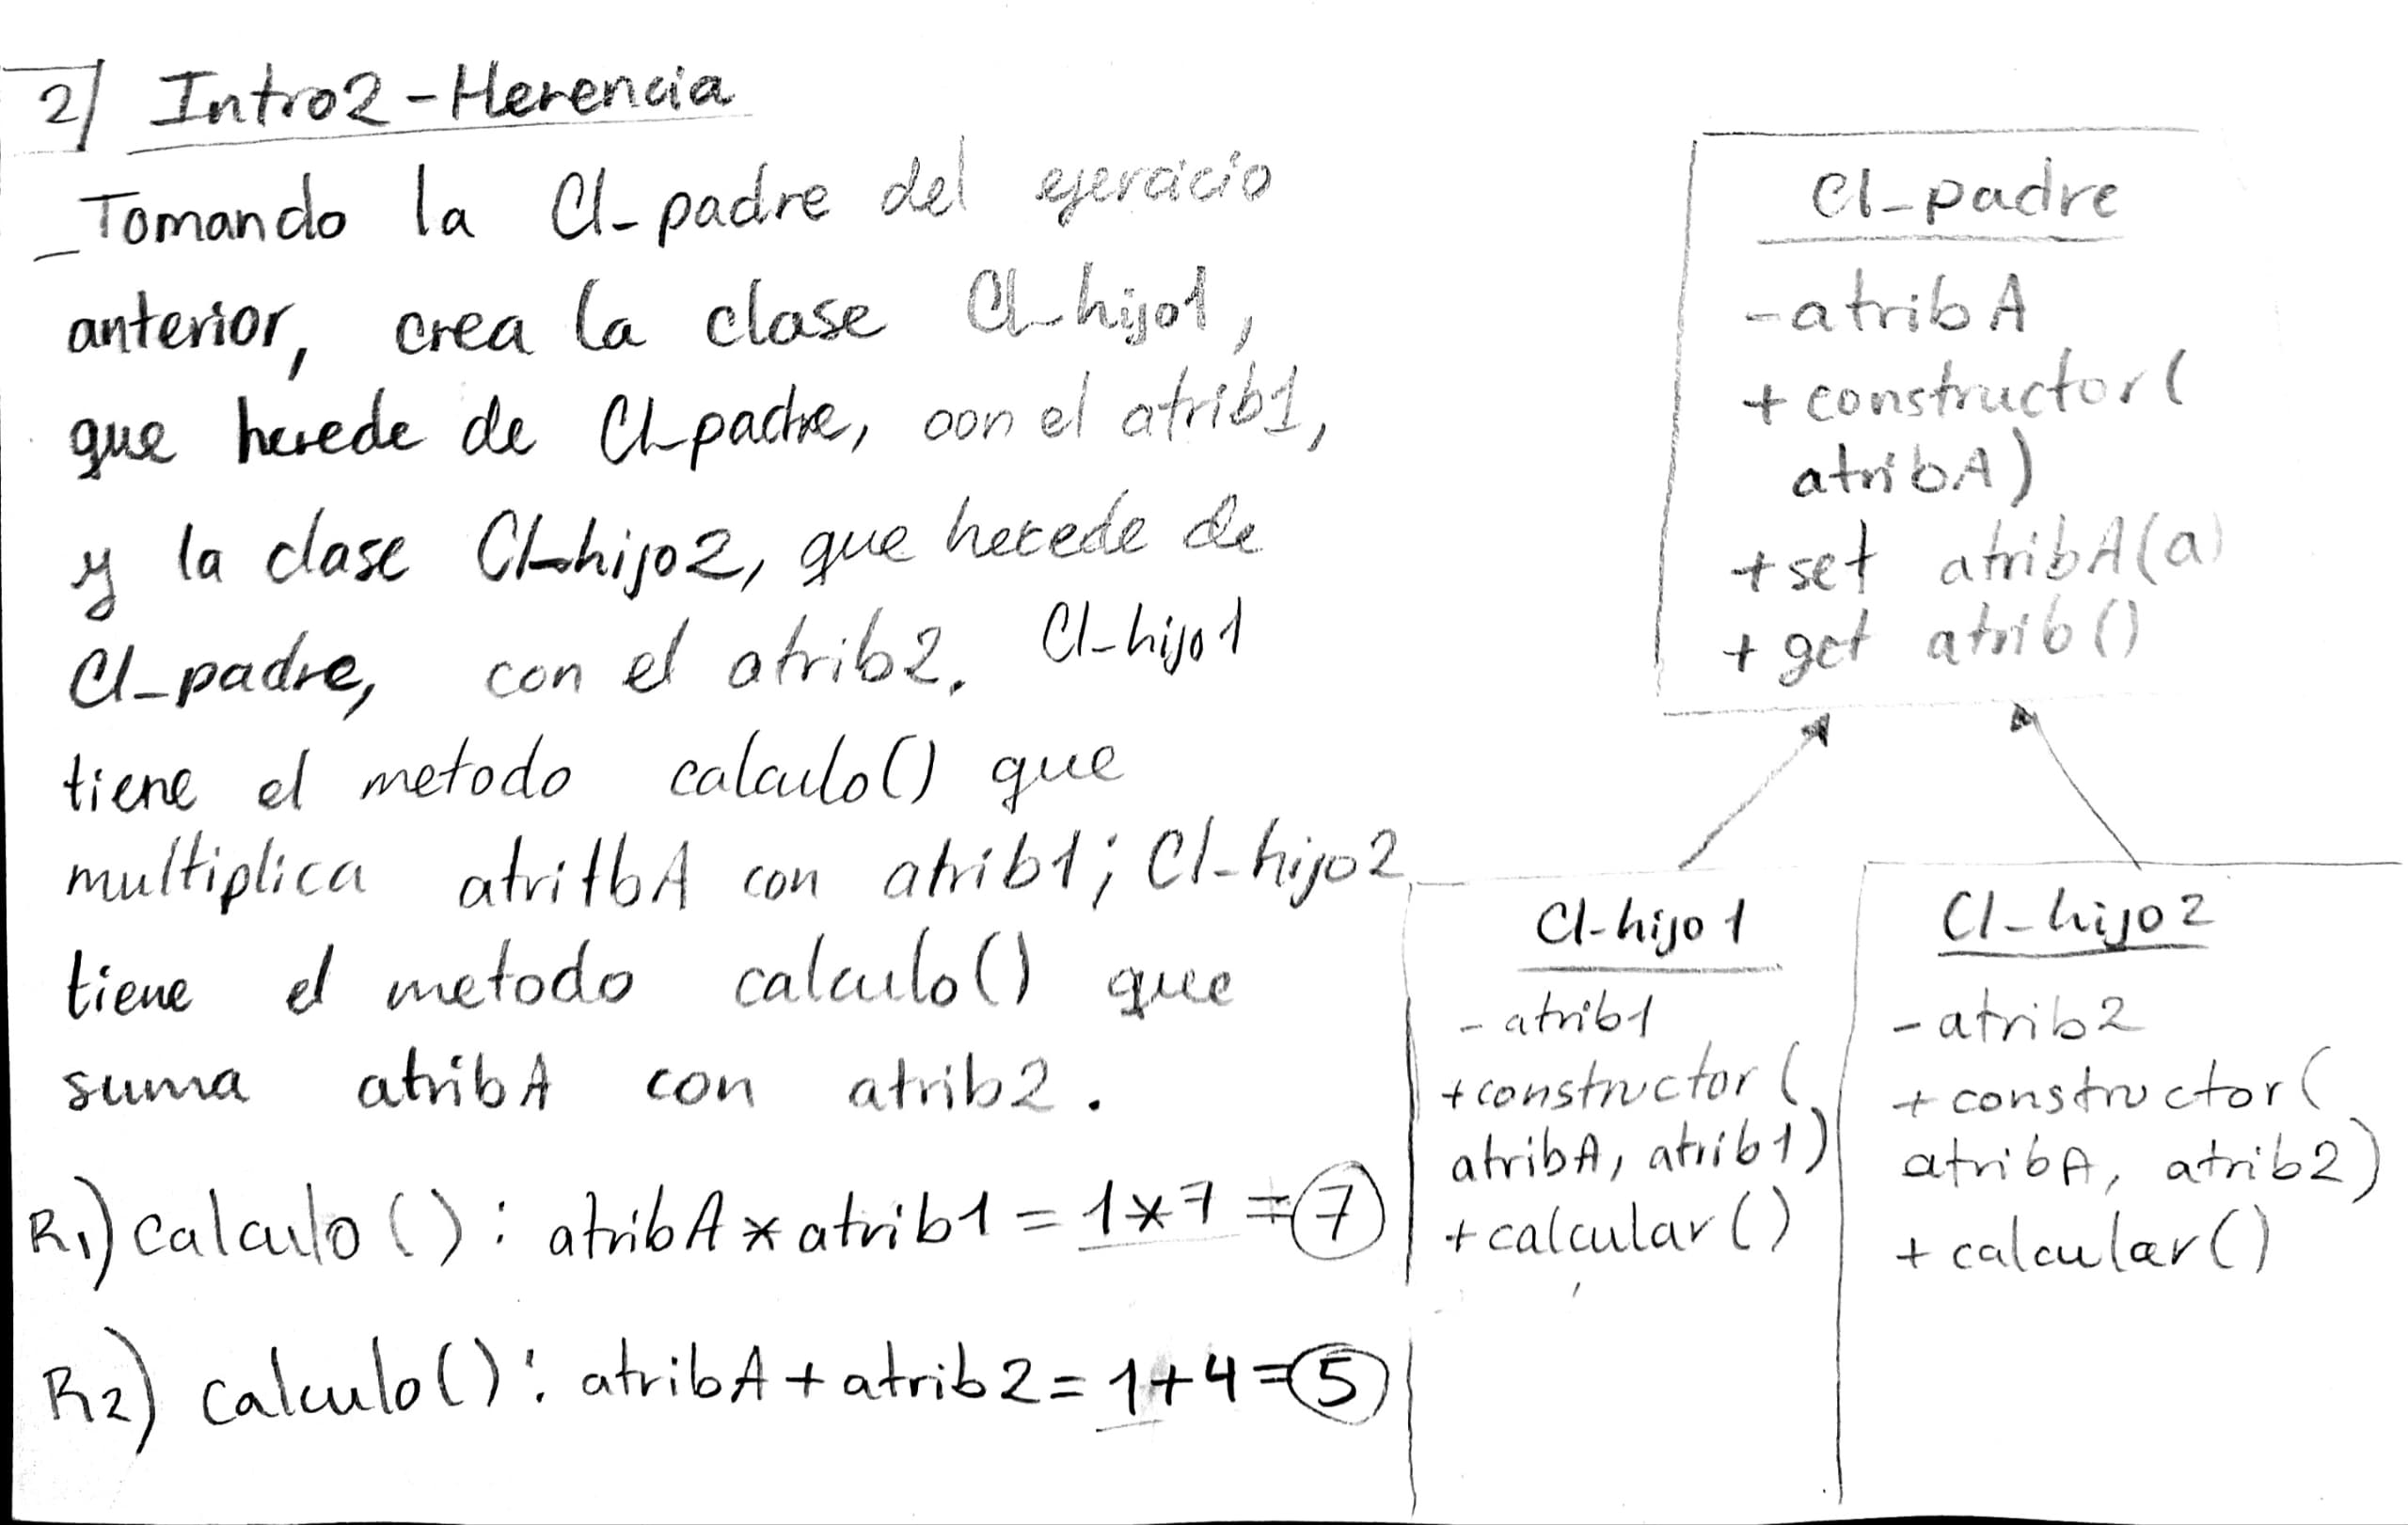 2) Intro2-Herencia
Tomando la Cl_padre del ejercicio
anterior, crea la clase Cl_hijo1,
que herede de Cl_padre, con el atrib1,
y la clase Cl_hijo2, que herede de
Cl_padre, con el atrib2. Cl_hijo1
tiene el metodo calculo() que
multiplica atritbA con atrib1; Cl_hijo2
tiene el metodo calculo() que
suma atribA con atrib2.
R1) calculo(): atribA*atrib1 = 1*7 = 7
R2) calculo(): atribA + atrib2 = 1+4 = 5
Cl_padre
-atribA
+constructor(
atribA)
+set atribA(a)
+get atrib()
Cl-hijo1
-atrib1
+constructor(
atribA, atrib1)
+calcular()
Cl_hijo2
-atrib2
+constructor(
atribA, atrib2)
+calcular()